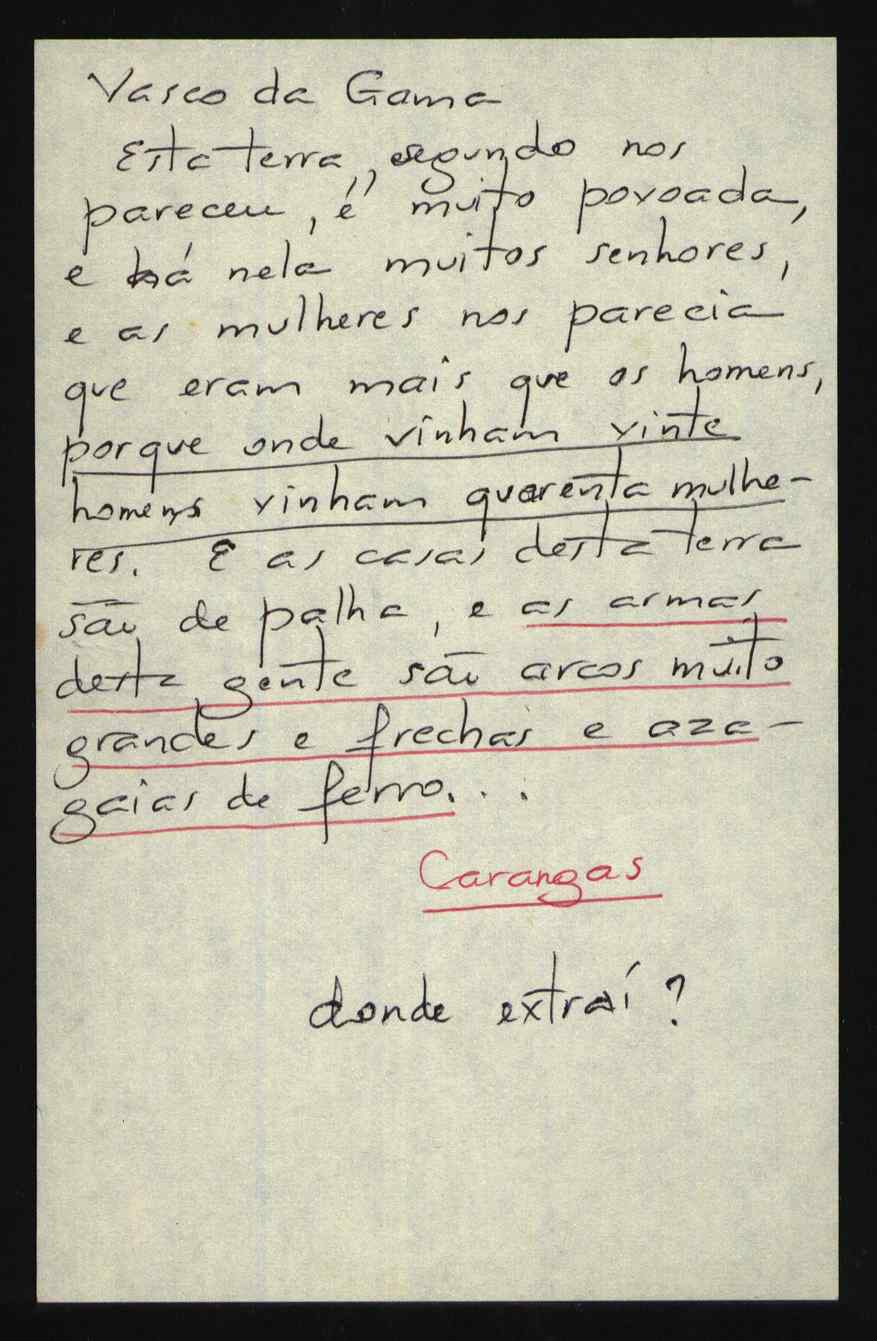 Vasco da Gama
Esta terra, segundo nos
pareceu, é muito povoada,
e há nela muitos senhores,
e as mulheres nos parecia
que eram mais que os homens,
porque onde vinham vinte
homens vinham quarenta mulhe-
res. E as casas desta terra
são de palha, e as armas
desta gente são arcos muito
grandes e frechas e aza-
gaias de ferro...
Carangas
donde extraí?